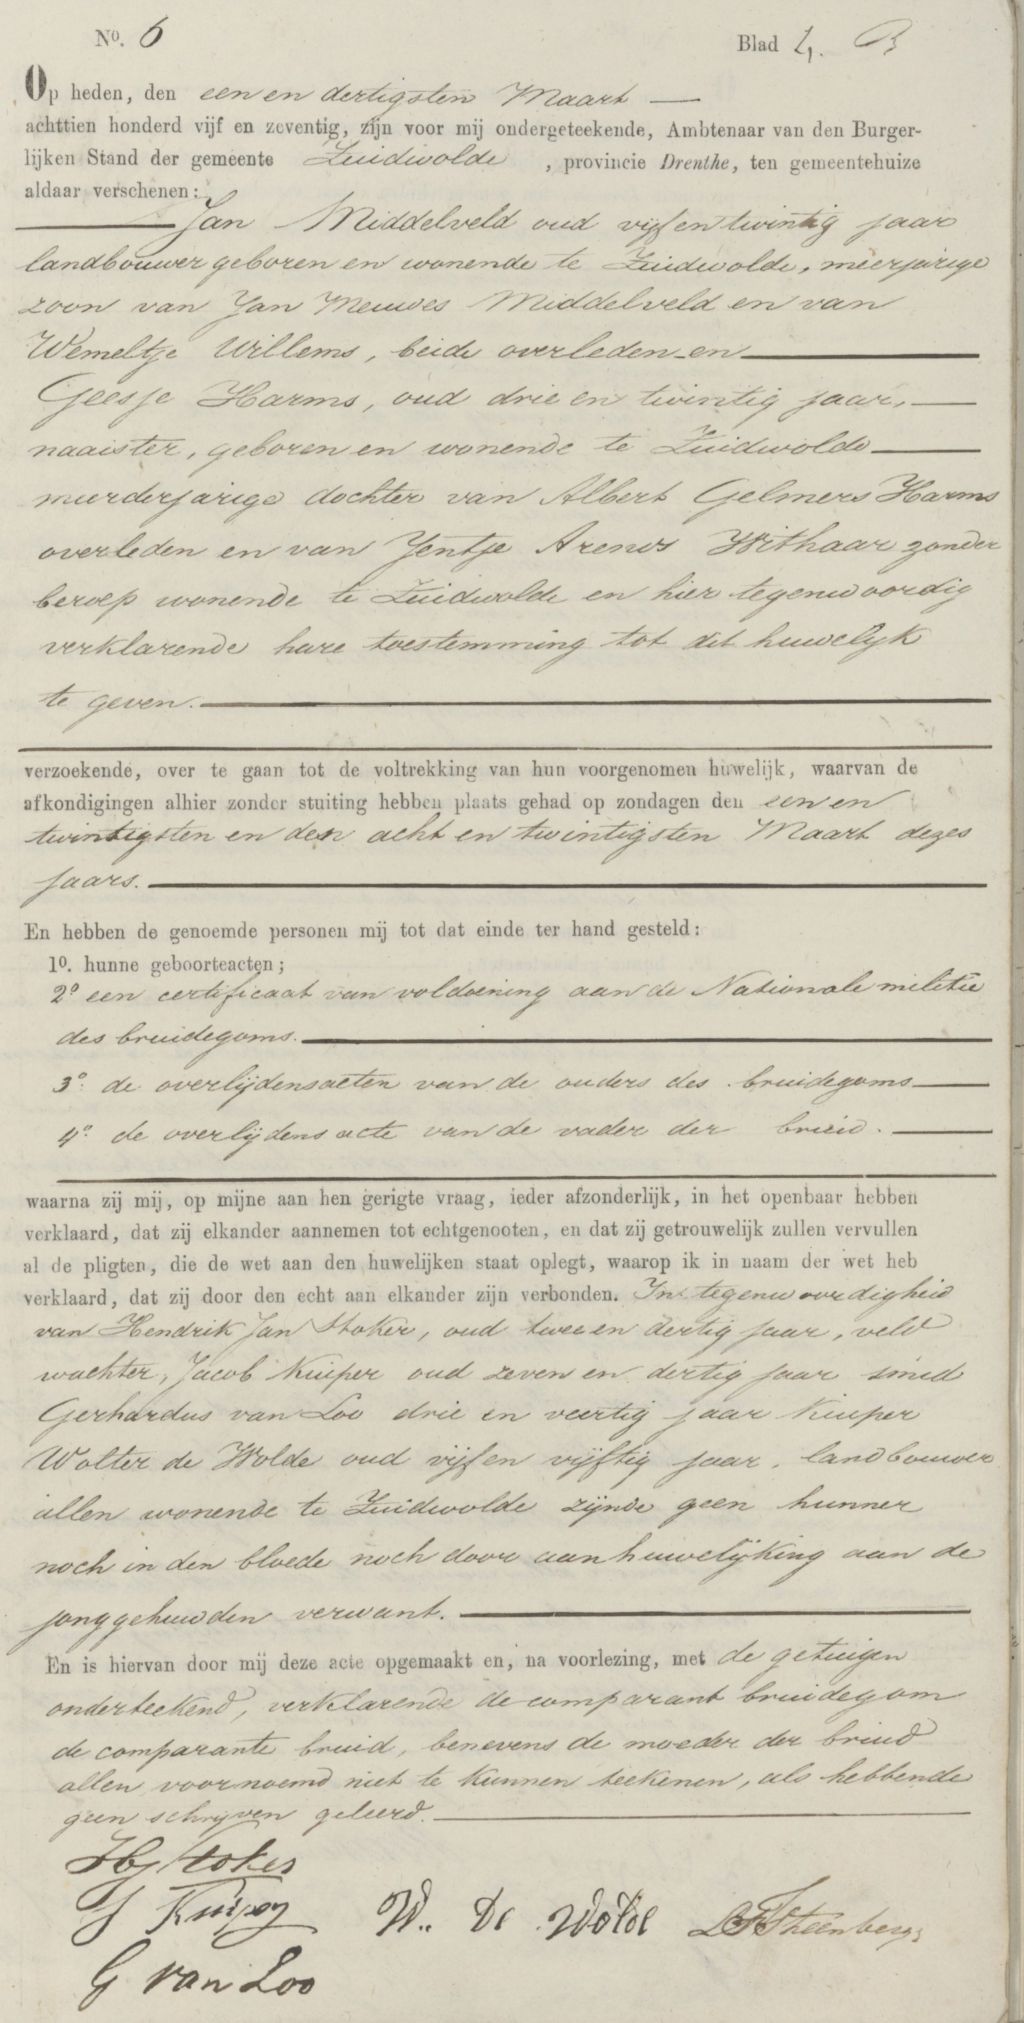 No. 6 Blad 4. B
Op heden, den een en dertigsten Maart
achttien honderd vijf en zeventig, zijn voor mij ondergeteekende, Ambtenaar van den Burger-
lijken Stand der gemeente Zuidwolde, provincie Drenthe, ten gemeentehuize
aldaar verschenen:
Jan Middelveld oud vijf en twintig jaar
landbouwer geboren en wonende te Zuidwolde, meerjarige
zoon van Jan Meuwes Middelveld en van
Wemeltje Willems, beide overleden en
Geesje Harms, oud drie en twintig jaar,
naaister, geboren en wonende te Zuidwolde
meerderjarige dochter van Albert Gelmers Harms
overleden en van Jentje Arends Withaar zonder
beroep wonende te Zuidwolde en hier tegenwoordig
verklarende hare toestemming tot dit huwelijk
te geven.
verzoekende, over te gaan tot de voltrekking van hun voorgenomen huwelijk, waarvan de
afkondigingen alhier zonder stuiting hebben plaats gehad op zondagen den een en
twintigsten en den acht en twintigsten Maart dezes
jaars.
En hebben de genoemde personen mij tot dat einde ter hand gesteld:
1o. hunne geboorteacten;
2o een certificaat van voldoening aan de Nationale militie
des bruidegoms.
3o. de overlijdensacten van de ouders des bruidegoms
4o. de overlijdens acte van de vader der bruid.
waarna zij mij, op mijne aan hen gerigte vraag, ieder afzonderlijk, in het openbaar hebben
verklaard, dat zij elkander aannemen tot echtgenooten, en dat zij getrouwelijk zullen vervullen
al de pligten, die de wet aan den huwelijken staat oplegt, waarop ik in naam der wet heb
verklaard, dat zij door den echt aan elkander zijn verbonden. In tegenwoordigheid
van Hendrik Jan Stoker, oud twee en dertig jaar, veld
wachter, Jacob Kuiper oud zeven en dertig jaar smid
Gerhardus van Loo drie en veertig jaar Kuiper
Wolter de Wolde oud vijf en vijftig jaar, landbouwer
allen wonende te Zuidwolde zijnde geen hunner
noch in den bloede noch door aanhuwelijking aan de
jonggehuwden verwant.
En is hiervan door mij deze acte opgemaakt en, na voorlezing, met de getuigen
onderteekend, verklarende de comparant bruidegom
de comparante bruid, benevens de moeder der bruid
allen voornoemd niet te kunnen teekenen, als hebbende
geen schrijven geleerd.
HJ Stoker
J Kuiper W. De Wolde
G van Loo